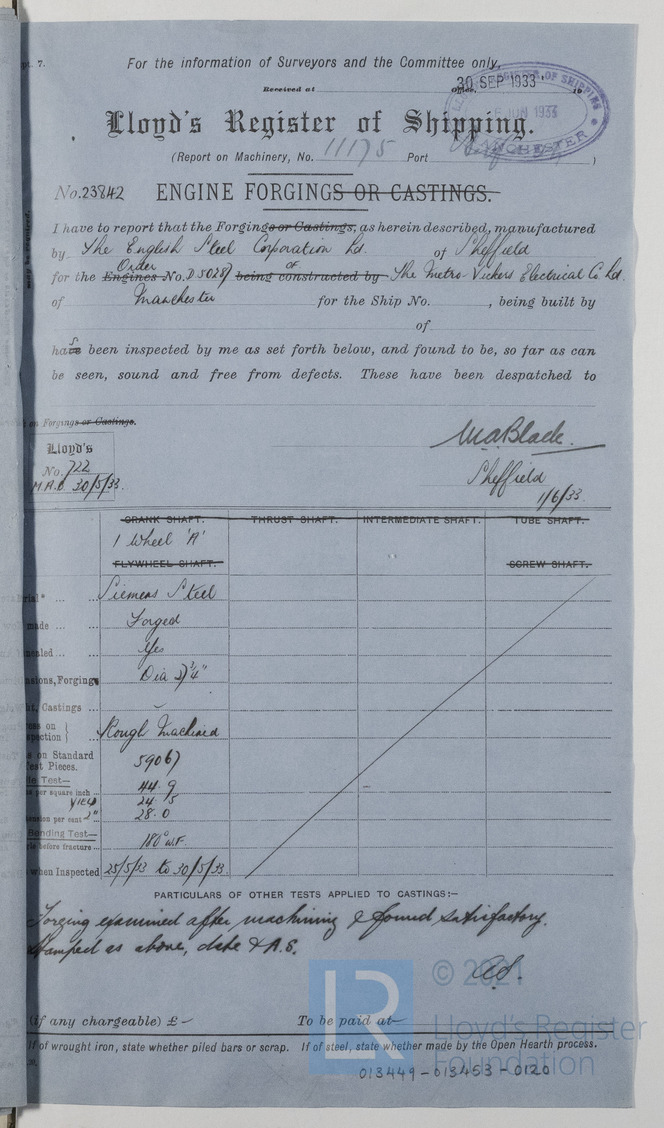 pt. 7.
For the information of Surveyors and the Committee only.
Received at
30 SEP 1933
19
Lloyd's Register of Shipping.
(Report on Machinery, No. 11175 Port )
MANCHESTER
No. 23842 ENGINE FORGINGS OR CASTINGS.
I have to report that the Forgings or Castings, as herein described, manufactured
by The English Steel Corporation Ld. of Sheffield
for the Engines Order No. being constructed by of The Metro Vickers Electrical Co Ld.
of Manchester for the Ship No. , being built by
of
have been inspected by me as set forth below, and found to be, so far as can
be seen, sound and free from defects. These have been despatched to
on Forgings or Castings.
Lloyd's
No. 722
30/5/33.
Sheffield
1/6/33.
CRANK SHAFT. THRUST SHAFT. INTERMEDIATE SHAFT. TUBE SHAFT.
1 Wheel 'A'
FLYWHEEL SHAFT. SCREW SHAFT.
Siemens Steel
made ... Forged
Yes
Forgings Dia
Castings ...
Rough Machined
on Standard
Test Pieces. 59067
Test—
per square inch ... 44.9
YIELD 24.5
per cent 2" 28.0
Bending Test—
before fracture ... 180° u.f.
when Inspected 25/5/33 to 30/5/33.
PARTICULARS OF OTHER TESTS APPLIED TO CASTINGS:—
Forging examined after machining & found satisfactory.
Stamped as above, date & A.S.
A.S.
(if any chargeable) £ – To be paid at –
If of wrought iron, state whether piled bars or scrap. If of steel, state whether made by the Open Hearth process.
013449-013453-0120
LR
© 2021
Lloyd's Register
Foundation